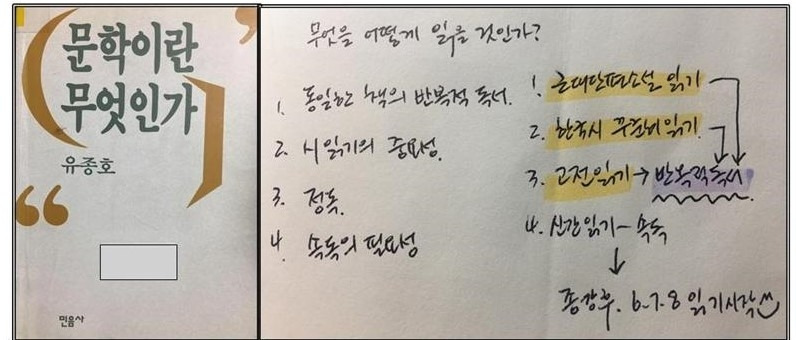 문학이란
무엇인가
유종호
민음사
무엇을 어떻게 읽을 것인가?
1. 동일한 책의 반복적 독서.
2. 시 읽기의 중요성.
3. 정독.
4. 속독의 필요성
1. 근대단편소설 읽기
2. 한국시 꾸준히 읽기
3. 고전읽기 → 반복적독서
4. 신간읽기 - 속독
↓
종강후. 6.7.8 읽기시작